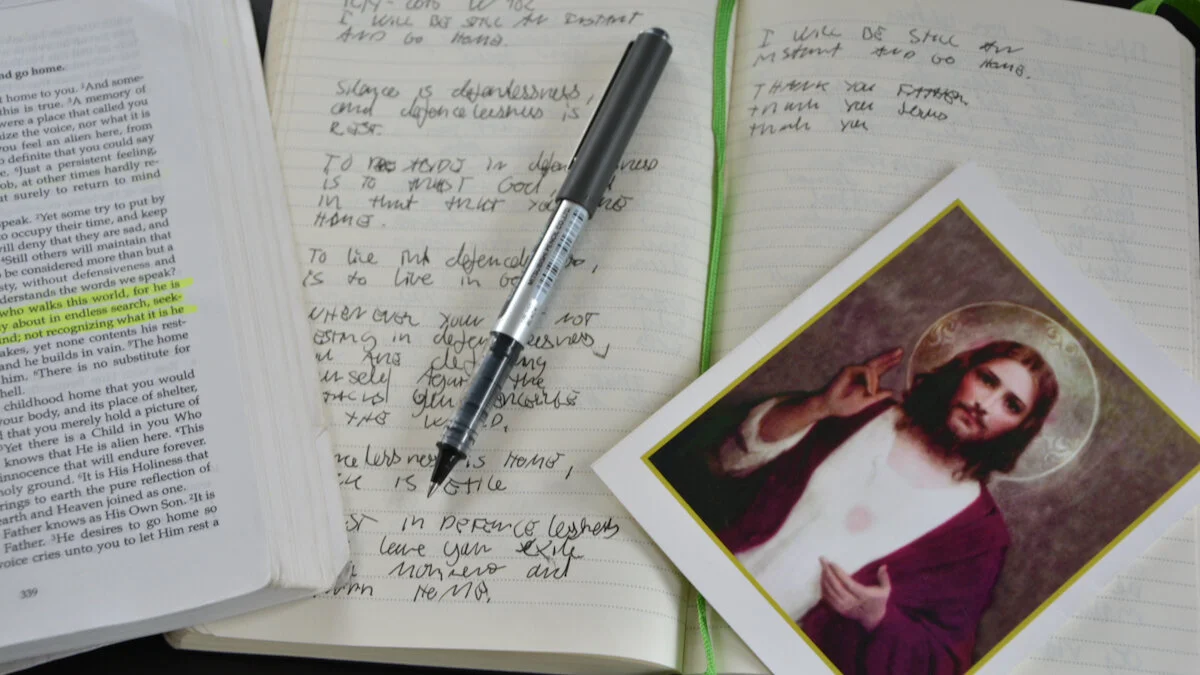 nd go home.
t home to you. ²And some-
this is true. ³A memory of
were a place that called you
ize the voice, nor what it is
you feel an alien here, from
o definite that you could say
e. ⁶Just a persistent feeling,
ob, at other times hardly re-
at surely to return to mind
peak. ²Yet some try to put by
o occupy their time, and keep
will deny that they are sad, and
⁵Still others will maintain that
o be considered more than but a
sty, without defensiveness and
derstands the words we speak?
who walks this world, for he is
y about in endless search, seek-
nd; not recognizing what it is he
akes, yet none contents his rest-
and he builds in vain. ⁵The home
him. ⁶There is no substitute for
hell.
childhood home that you would
your body, and its place of shelter,
d that you merely hold a picture of
Yet there is a Child in you Who
knows that He is alien here. ⁴This
innocence that will endure forever.
holy ground. ⁶It is His Holiness that
rings to earth the pure reflection of
earth and Heaven joined as one.
Father knows as His Own Son. ²It is
Father. ³He desires to go home so
voice cries unto you to let Him rest a
339
I WILL BE STILL AN INSTANT
AND GO HOME.
Silence is defenlessness,
and defencelessness is
REST.
TO in
IS TO TRUST GOD,
IN that TRUST YOU
HOME.
To live
is to live in
WHENEVER YOUR NOT
RESTING in
defending
the
THE
IS HOME,
IS EXILE
IN DEFENCElessness
leave your exile
and
HOME.
I WILL BE STILL AN
INSTANT AND GO HOME.
THANK YOU FATHER
thank you Jesus
thank you